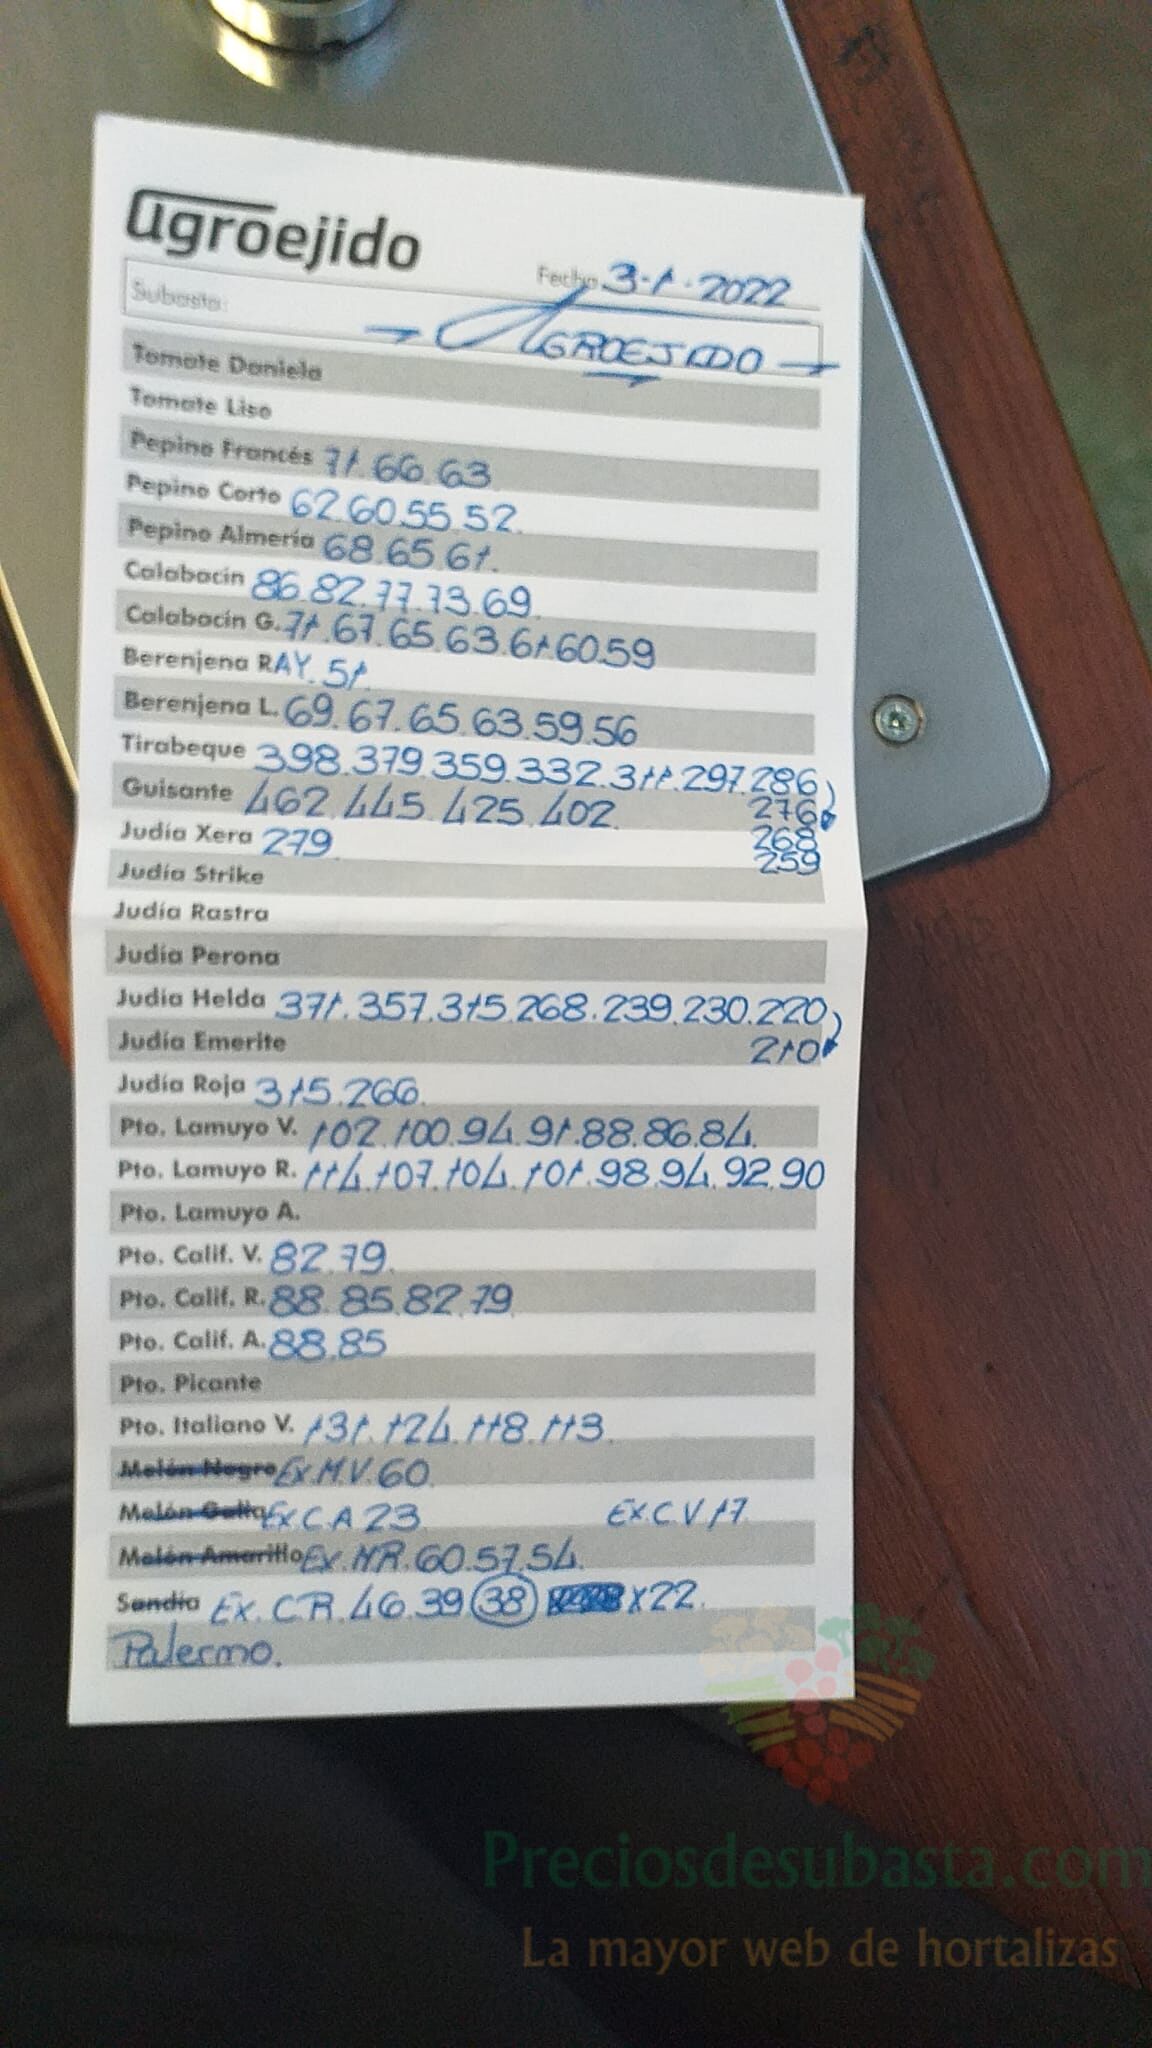 agroejido
Fecha 3-1-2022
Subasta: → AGROEJIDO →
Tomate Daniela
Tomate Liso
Pepino Francés 71.66.63
Pepino Corto 62.60.55.52.
Pepino Almería 68.65.61.
Calabacín 86.82.77.73.69.
Calabacín G. 71.67.65.63.61.60.59
Berenjena RAY. 51.
Berenjena L. 69.67.65.63.59.56
Tirabeque 398.379.359.332.311.297.286
Guisante 462.445.425.402. 276
Judía Xera 279 268
259
Judía Strike
Judía Rastra
Judía Perona
Judía Helda 371.357.315.268.239.230.220
Judía Emerite 210
Judía Roja 315.266.
Pto. Lamuyo V. 102.100.94.91.88.86.84.
Pto. Lamuyo R. 114.107.104.101.98.94.92.90
Pto. Lamuyo A.
Pto. Calif. V. 82.79.
Pto. Calif. R. 88.85.82.79
Pto. Calif. A. 88.85
Pto. Picante
Pto. Italiano V. 131.124.118.113.
Melón Negro Ex.M.V.60.
Melón Galia Ex C.A 23 Ex.C.V 17.
Melón Amarillo Ex.MR.60.57.54.
Sandía Ex.C.R.46.39 38 x22.
Palermo.
Preciosdesubasta.com
La mayor web de hortalizas